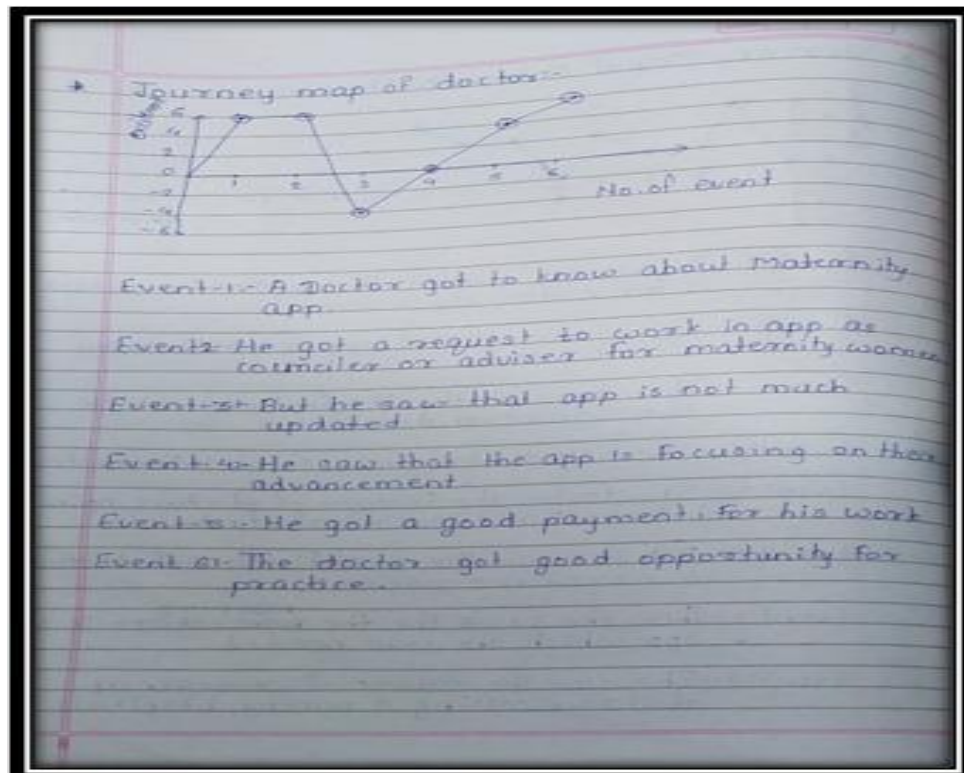 → Journey map of doctor:-
6
4
2
0
-2
-4
-6
1 2 3 4 5 6
No. of event
Event-1:- A Doctor got to know about Maternity
app.
Event2- He got a request to work in app as
counciler or adviser for maternity women
Event-3:- But he saw that app is not much
updated
Event-4:- He saw that the app is focusing on their
advancement
Event-5:- He got a good payment for his work
Event 6:- The doctor got good opportunity for
practice.